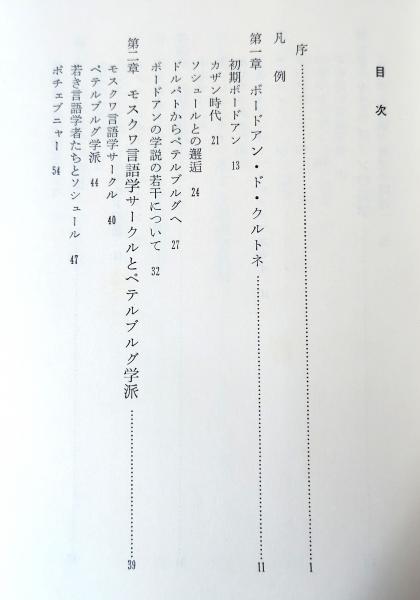 目次
序……………………………………1
凡例
第一章 ボードアン・ド・クルトネ……………………………………11
初期ボードアン 13
カザン時代 21
ソシュールとの邂逅 24
ドルパトからペテルブルグへ 27
ボードアンの学説の若干について 32
第二章 モスクワ言語学サークルとペテルブルグ学派……………………39
モスクワ言語学サークル 40
ペテルブルグ学派 44
若き言語学者たちとソシュール 47
ポチェブニャー 54